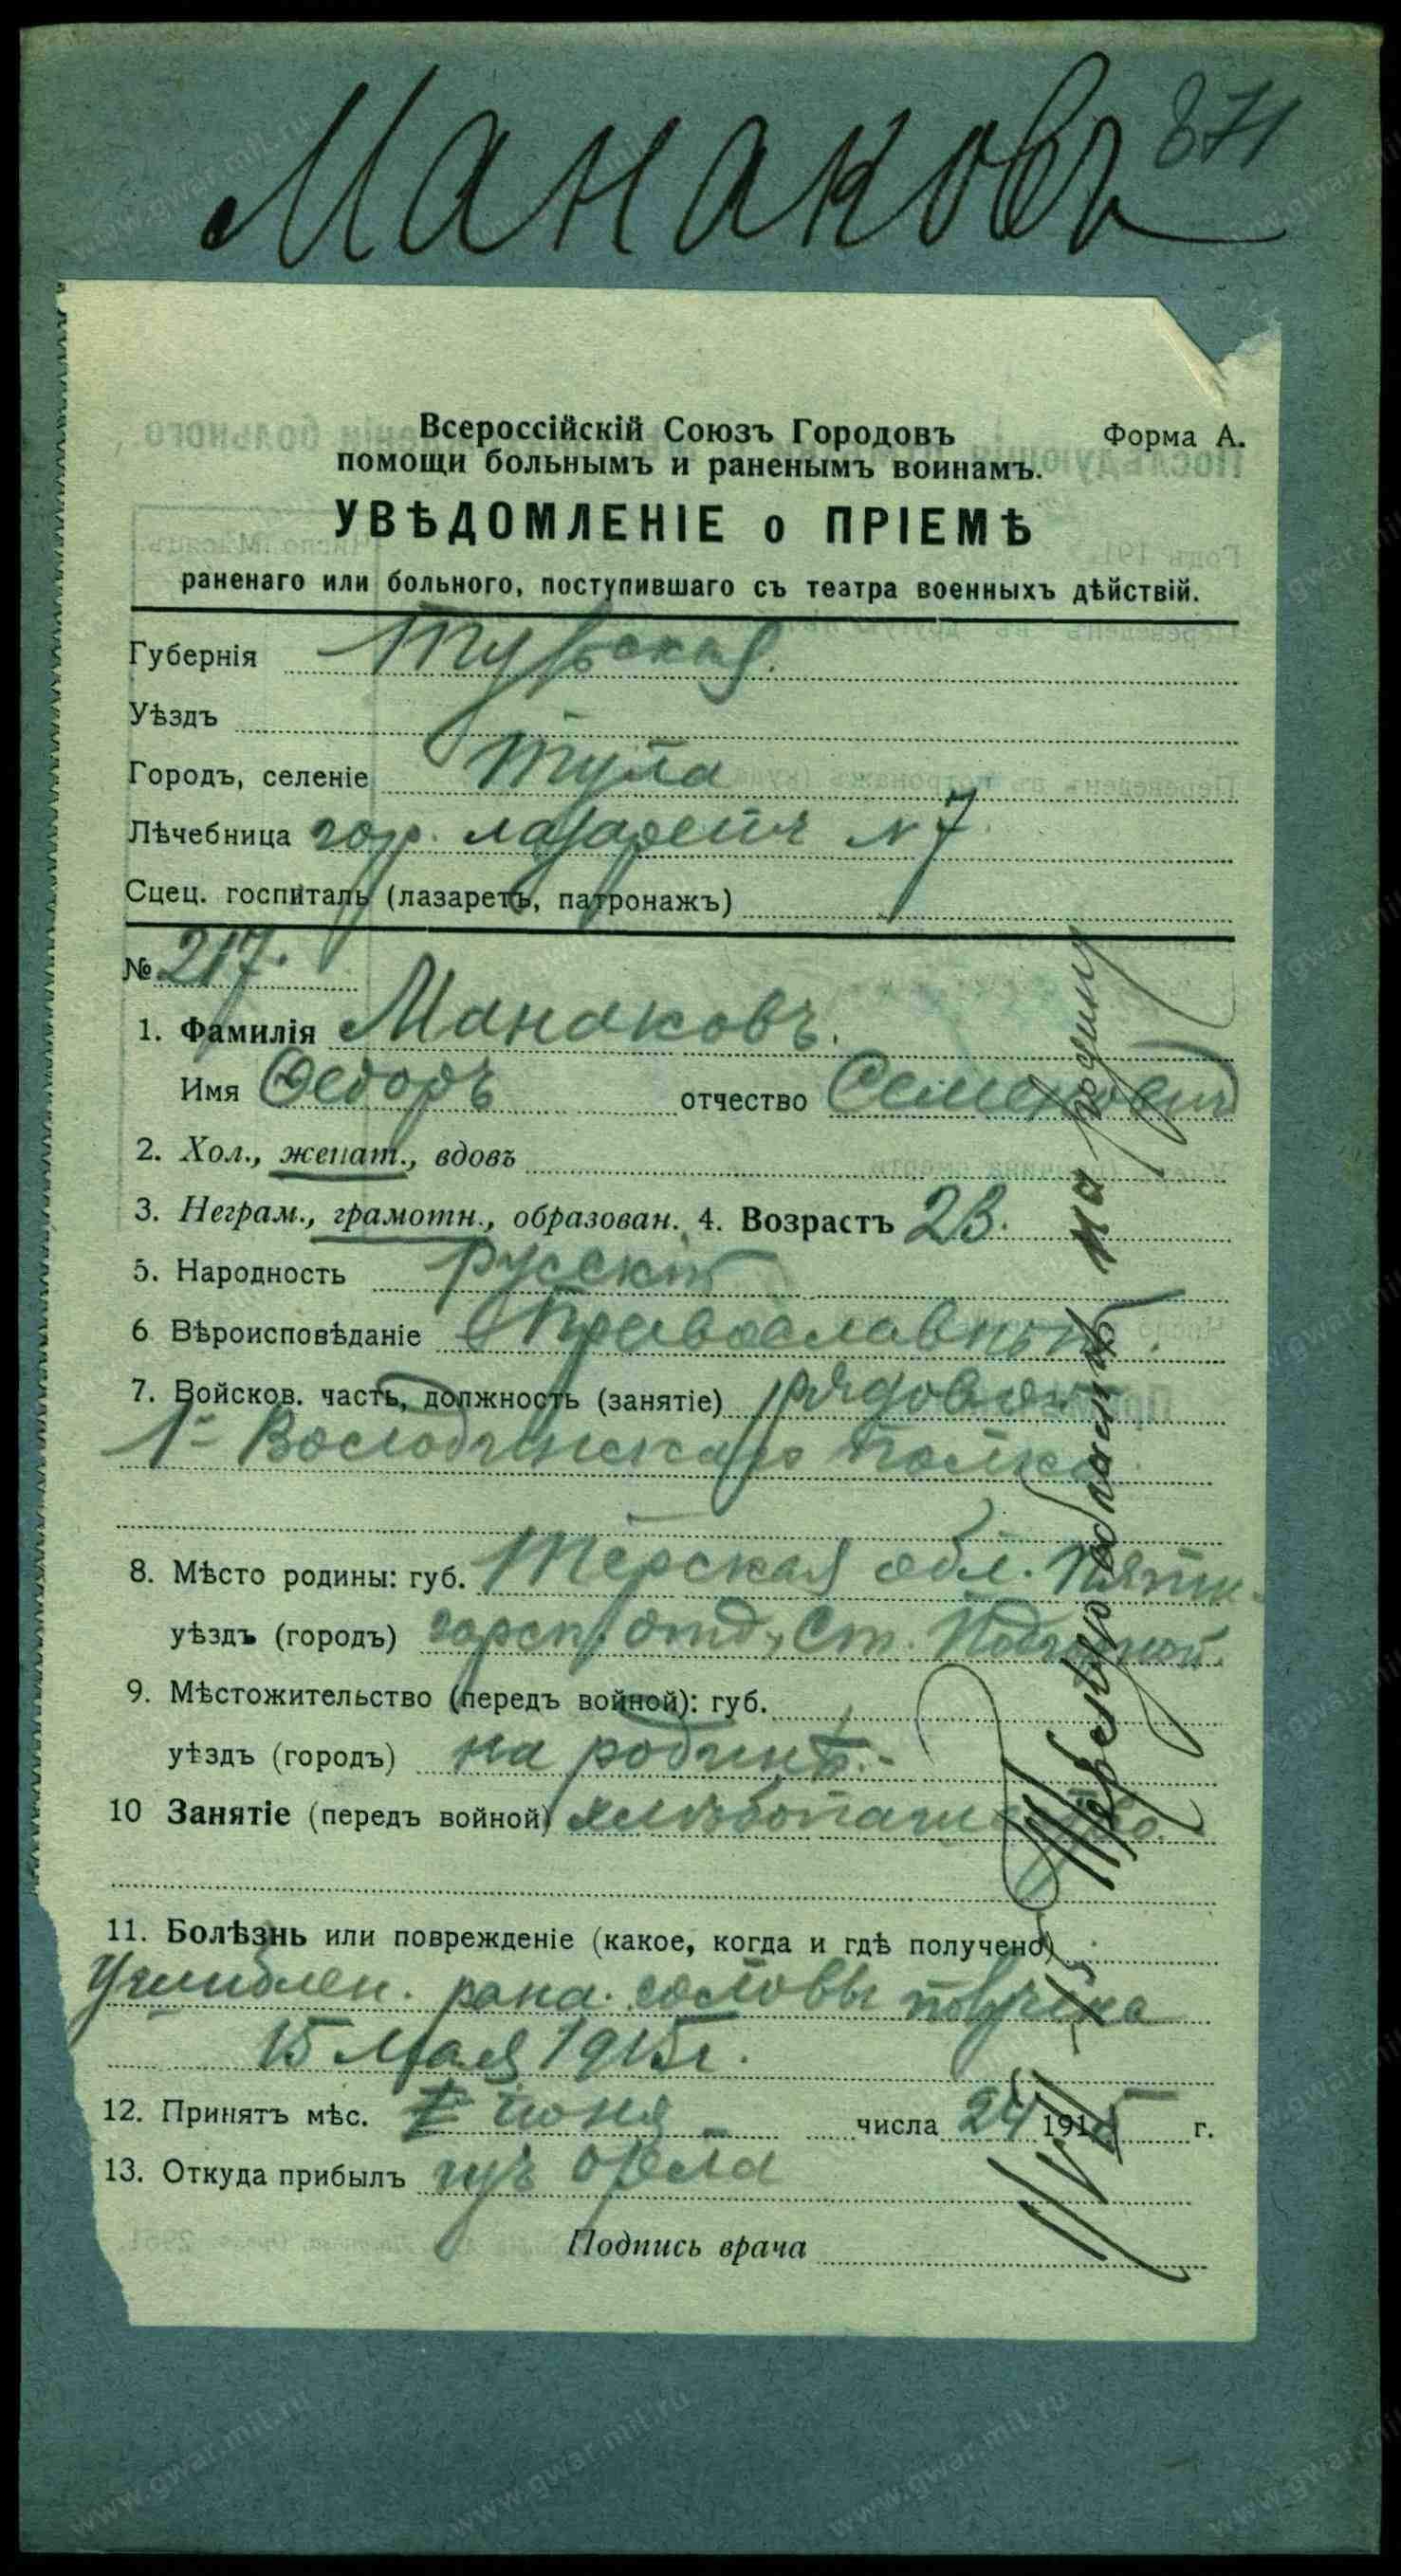 Манаковъ 871
Всероссійскій Союзъ Городовъ
Форма А.
помощи больнымъ и раненымъ воинамъ.
УВѢДОМЛЕНІЕ о ПРІЕМѢ
раненаго или больного, поступившаго съ театра военныхъ дѣйствій.
Губернія Тульская.
Уѣздъ
Городъ, селеніе Тула
Лѣчебница гор. лазаретъ №7
Спец. госпиталь (лазаретъ, патронажъ)
№ 217.
1. Фамилія Манаковъ.
Имя Федоръ отчество Семенович
2. Хол., женат., вдовъ
3. Неграм., грамотн., образован. 4. Возрастъ 23.
5. Народность русскій
6 Вѣроисповѣданіе Православный.
7. Войсков. часть, должность (занятіе) рядовой
1 полка
8. Мѣсто родины: губ. Терская обл. Пяти-
уѣздъ (городъ) горск. отд., Ст. Подгорной.
9. Мѣстожительство (передъ войной): губ.
уѣздъ (городъ) на родинѣ.
10 Занятіе (передъ войной) хлѣбопашество.
11. Болѣзнь или поврежденіе (какое, когда и гдѣ получено)
рана. головы
15 Мая 1915 г.
12. Принятъ мѣс. іюня числа 24 1915 г.
13. Откуда прибылъ изъ Орла
Подпись врача
на родину
www.gwar.mil.ru